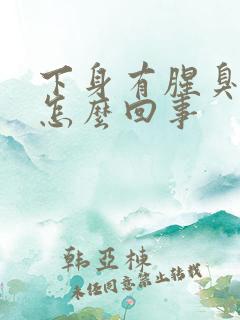 下身有腥臭
怎麽回事
韩亞棟
未经同意禁止转载